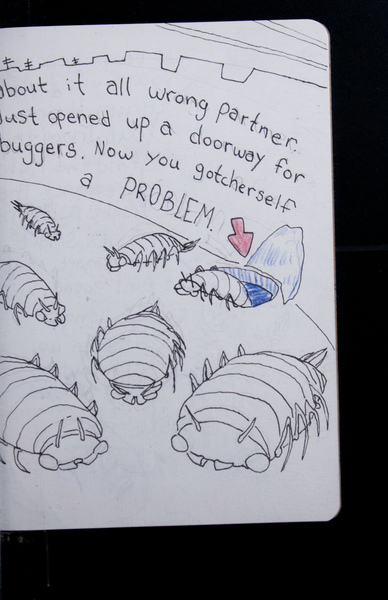 about it all wrong partner.
Just opened up a doorway for
buggers. Now you gotcherself
a PROBLEM.